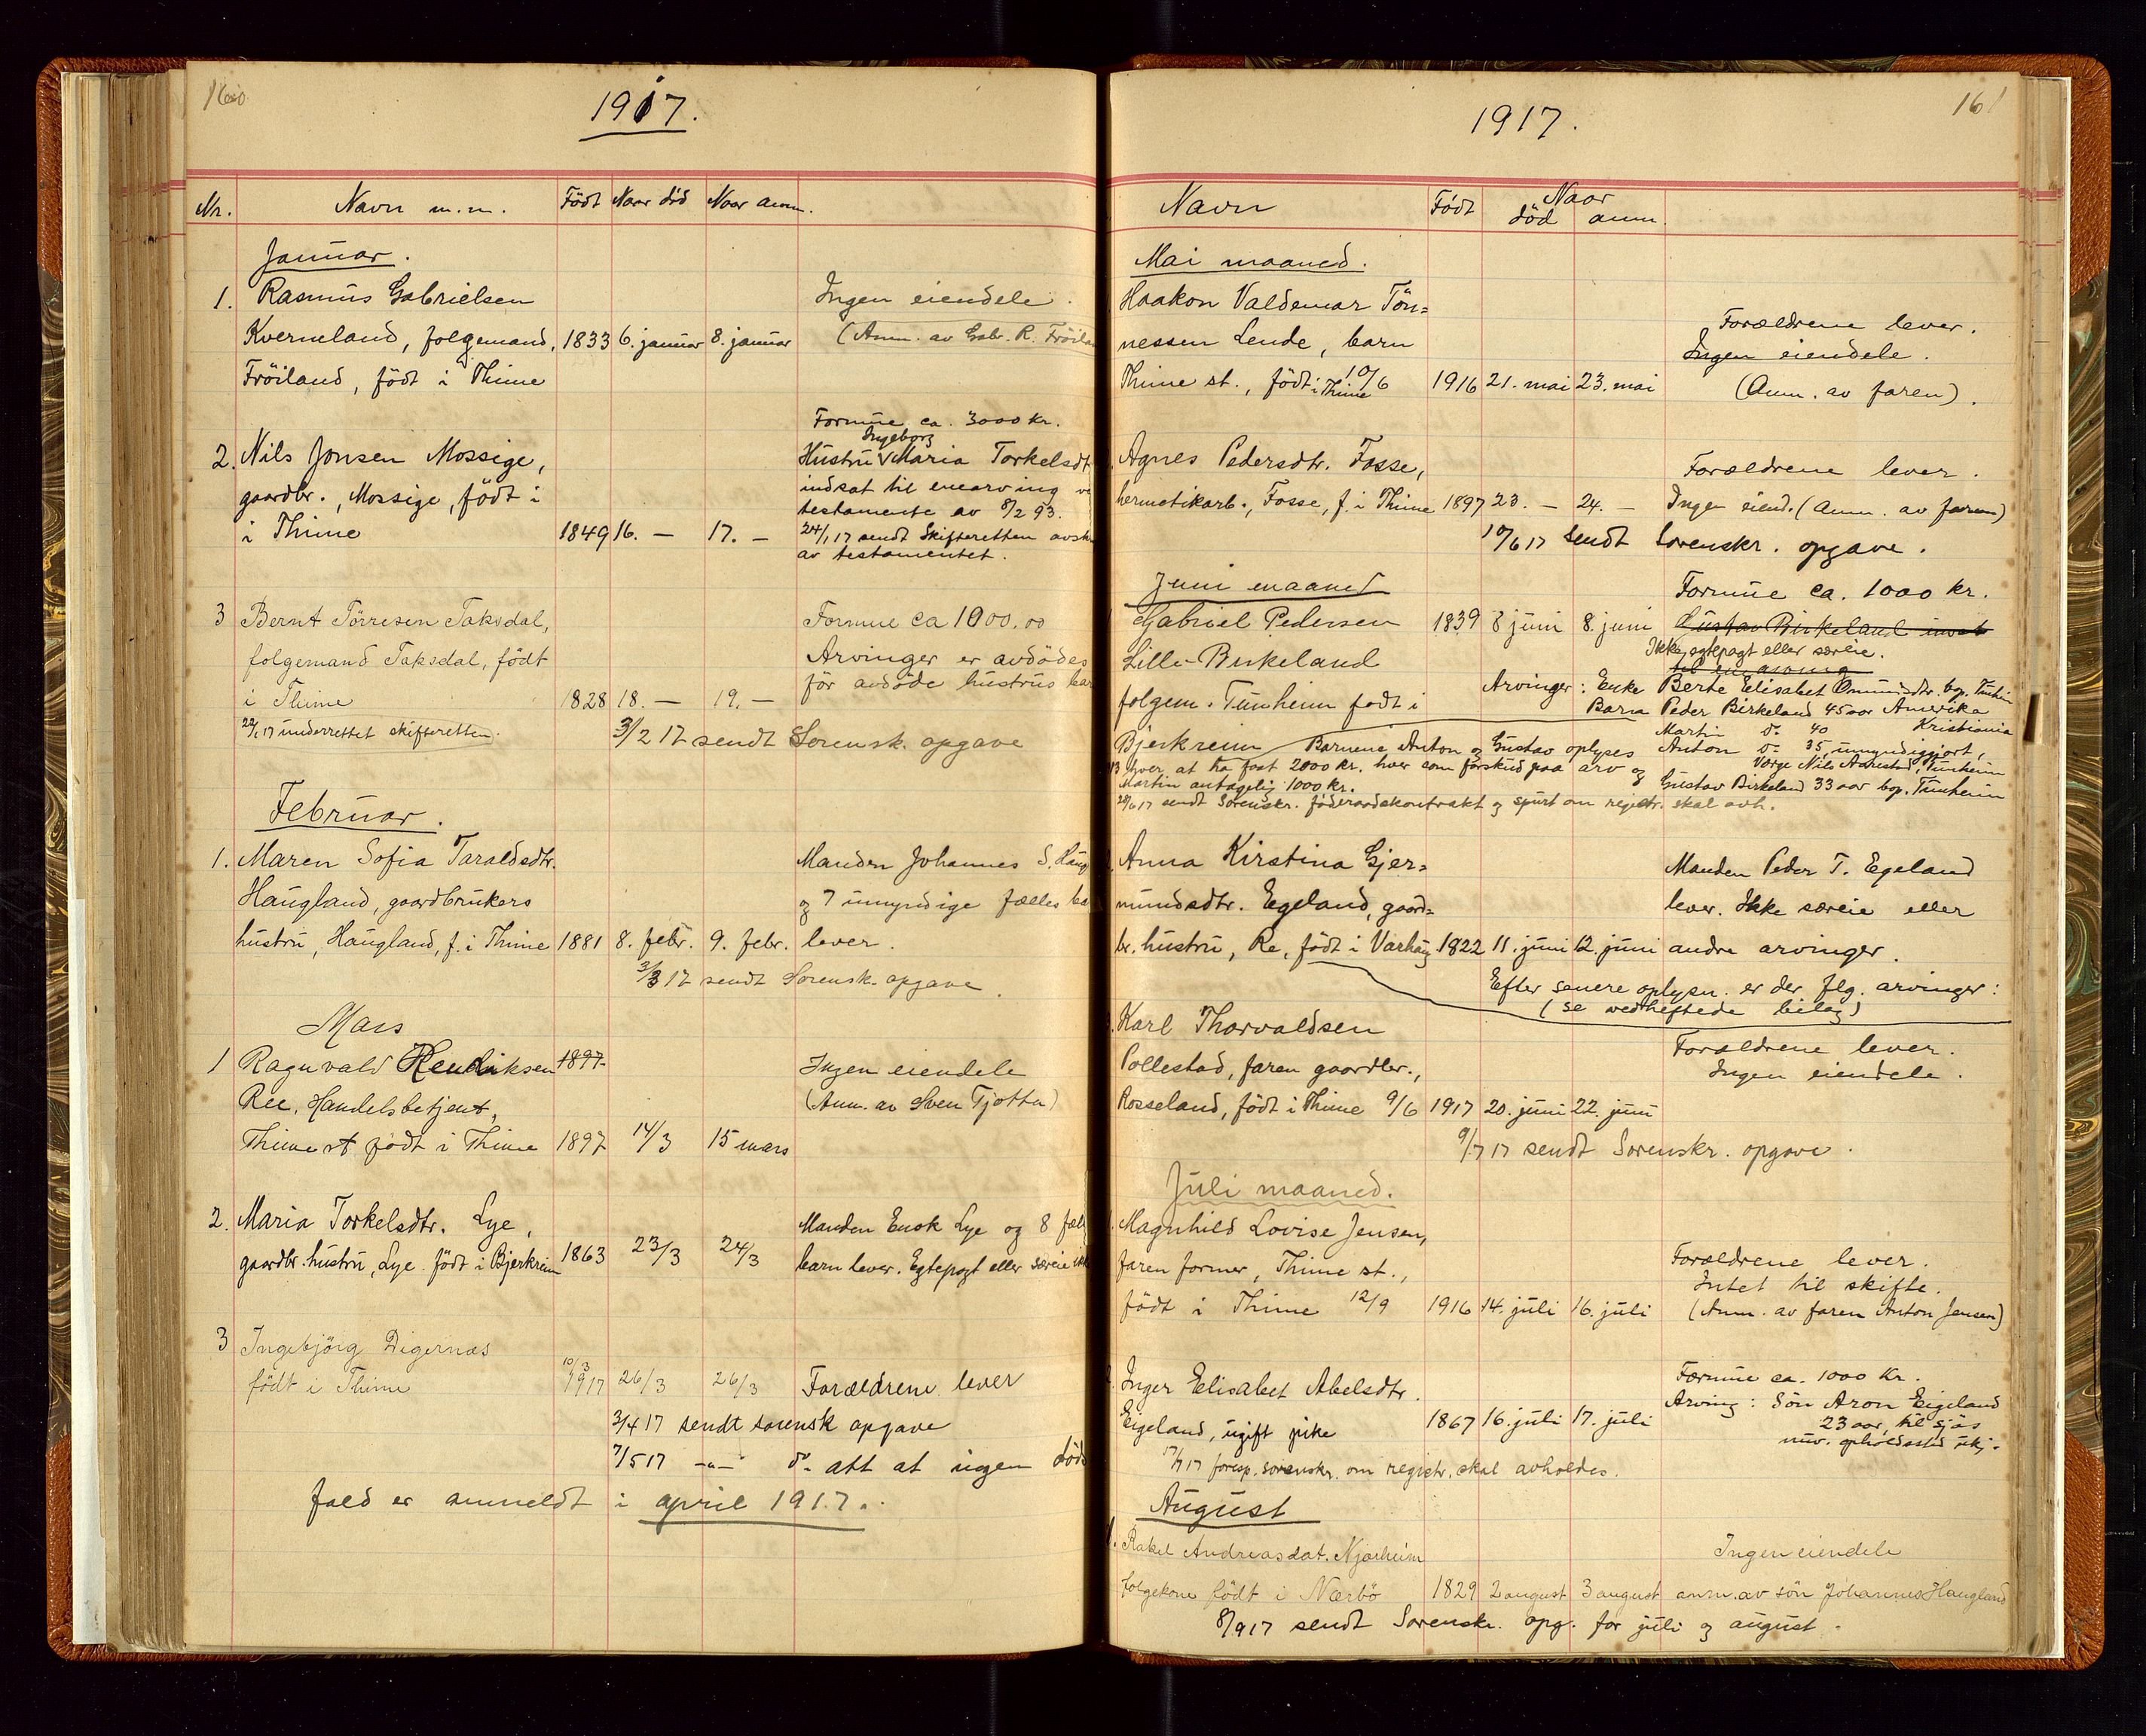 160
1917.
Nr. Navn m.m. Födt Naar död Naar anm.
Januar.
1. Rasmus Gabrielsen Ingen eiendele.
Kverneland, folgemand, 1833 6. januar 8. januar (Anm. av Gabr. R. Fröilan
Fröiland, födt i Thime
Formue ca. 3000 kr.
Ingeborg
2. Nils Jonsen Mossige, Hustru V Maria Torkelsdt
gaardbr., Mossige, födt i indsat til enearving ve
testamente av 8/2 93.
i Thime 1849 16. — 17. — 24/1 17 sendt Skifteretten avsk
av testamentet.
3 Bernt Törresen Taksdal, Formue ca 1000.00
folgemand Taksdal, födt Arvinger er avdödes
i Thime 1828 18. — 19. — för avdöde hustrus bar
22/1 17 underrettet skifteretten. 3/2 17 sendt Sorensk. opgave
Februar.
1. Maren Sofia Taraldsdtr. Manden Johannes S. Haug
Haugland, gaardbrukers og 7 umyndige fælles ba
hustru, Haugland, f. i Thime 1881 8. febr. 9. febr. lever.
3/3 17 sendt Sorensk. opgave.
Mars
1 Ragnvald Hendriksen 1897 Ingen eiendele
Ree, Handelsbetjent, (Anm. av Sven Tjotta)
Thime st födt i Thime 1897 14/3 15 mars
2. Maria Torkelsdtr. Lye, Manden Enok Lye og 8 fæl
gaardbr. hustru, Lye. födt i Bjerkreim 1863 23/3 24/3 barn lever. Egtepagt eller særeie ik
3 Ingebjörg Digernæs
födt i Thime 10/3 1917 26/3 26/3 Forældrene lever
3/4 17 sendt sorensk opgave
7/5 17 -"- do. att at ingen döds
fald er anmeldt i april 1917.
161
1917.
Navn Födt Naar
död anm.
Mai maaned.
Haakon Valdemar Tön= Forældrene lever.
nessen Lende, barn Ingen eiendele.
Thime st., födt i Thime 10/6 1916 21. mai 23. mai (Anm. av faren).
Agnes Pedersdtr. Fosse, Forældrene lever.
hermetikarb., Fosse, f. i Thime 1897 23. — 24. — Ingen eiend. (Anm. av faren)
10/6 17 sendt Sorenskr. opgave.
Juni maaned Formue ca. 1000 kr.
Gabriel Pedersen 1839 8 juni 8. juni Gustav Birkeland insat
Lille-Birkeland Ikke egtepagt eller særeie.
til en arving
folgem. Tunheim födt i Arvinger: Enke Berte Elisabet Omundsdtr. bop. Tunheim
Barn Peder Birkeland 45 aar Amerika
Martin do. 40 Kristiania
Bjerkreim Barnene Anton og Gustav oplyses Anton do. 35, umyndiggjort,
Værge Nils Aarrestad, Tunheim
13 lever at ha faat 2000 kr. hver som forskud paa arv og Gustav Birkeland 33 aar bop. Tunheim
Martin antagelig 1000 kr.
28/6 17 sendt Sorenskr. föderaadskontrakt og spurt om registr. skal avh.
Anna Kirstina Gjer= Manden Peder T. Egeland
mundsdtr. Egeland, gaard= lever. Ikke særeie eller
br. hustru, Re, födt i Varhaug 1822 11. juni 12. juni andre arvinger.
Efter senere oplysn. er der flg. arvinger:
(se vedheftede bilag)
Karl Thorvaldsen Forældrene lever.
Pollestad, faren gaardbr., Ingen eiendele.
Rosseland, födt i Thime 9/6 1917 20. juni 22. juni
9/7 17 sendt Sorenskr. opgave.
Juli maaned.
Magnhild Lovise Jensen, Forældrene lever.
faren former, Thime st., Intet til skifte.
födt i Thime 12/9 1916 14. juli 16. juli (Anm. av faren Anton Jensen)
Inger Elisabet Abelsdtr. Formue ca. 1000 kr.
Eigeland, ugift pike 1867 16. juli 17. juli Arving: Sön Aron Eigeland
23 aar, til sjös
nuv. opholdssted ukj.
17/7 17 foresp. sorenskr. om registr. skal avholdes.
August
1. Rakel Andreasdat. Njærheim Ingen eiendele
folgekone födt i Nærbö 1829 2 august 3 august anm. av sön Johannes Haugland
8/9 17 sendt Sorenskr. opg. for juli og august.